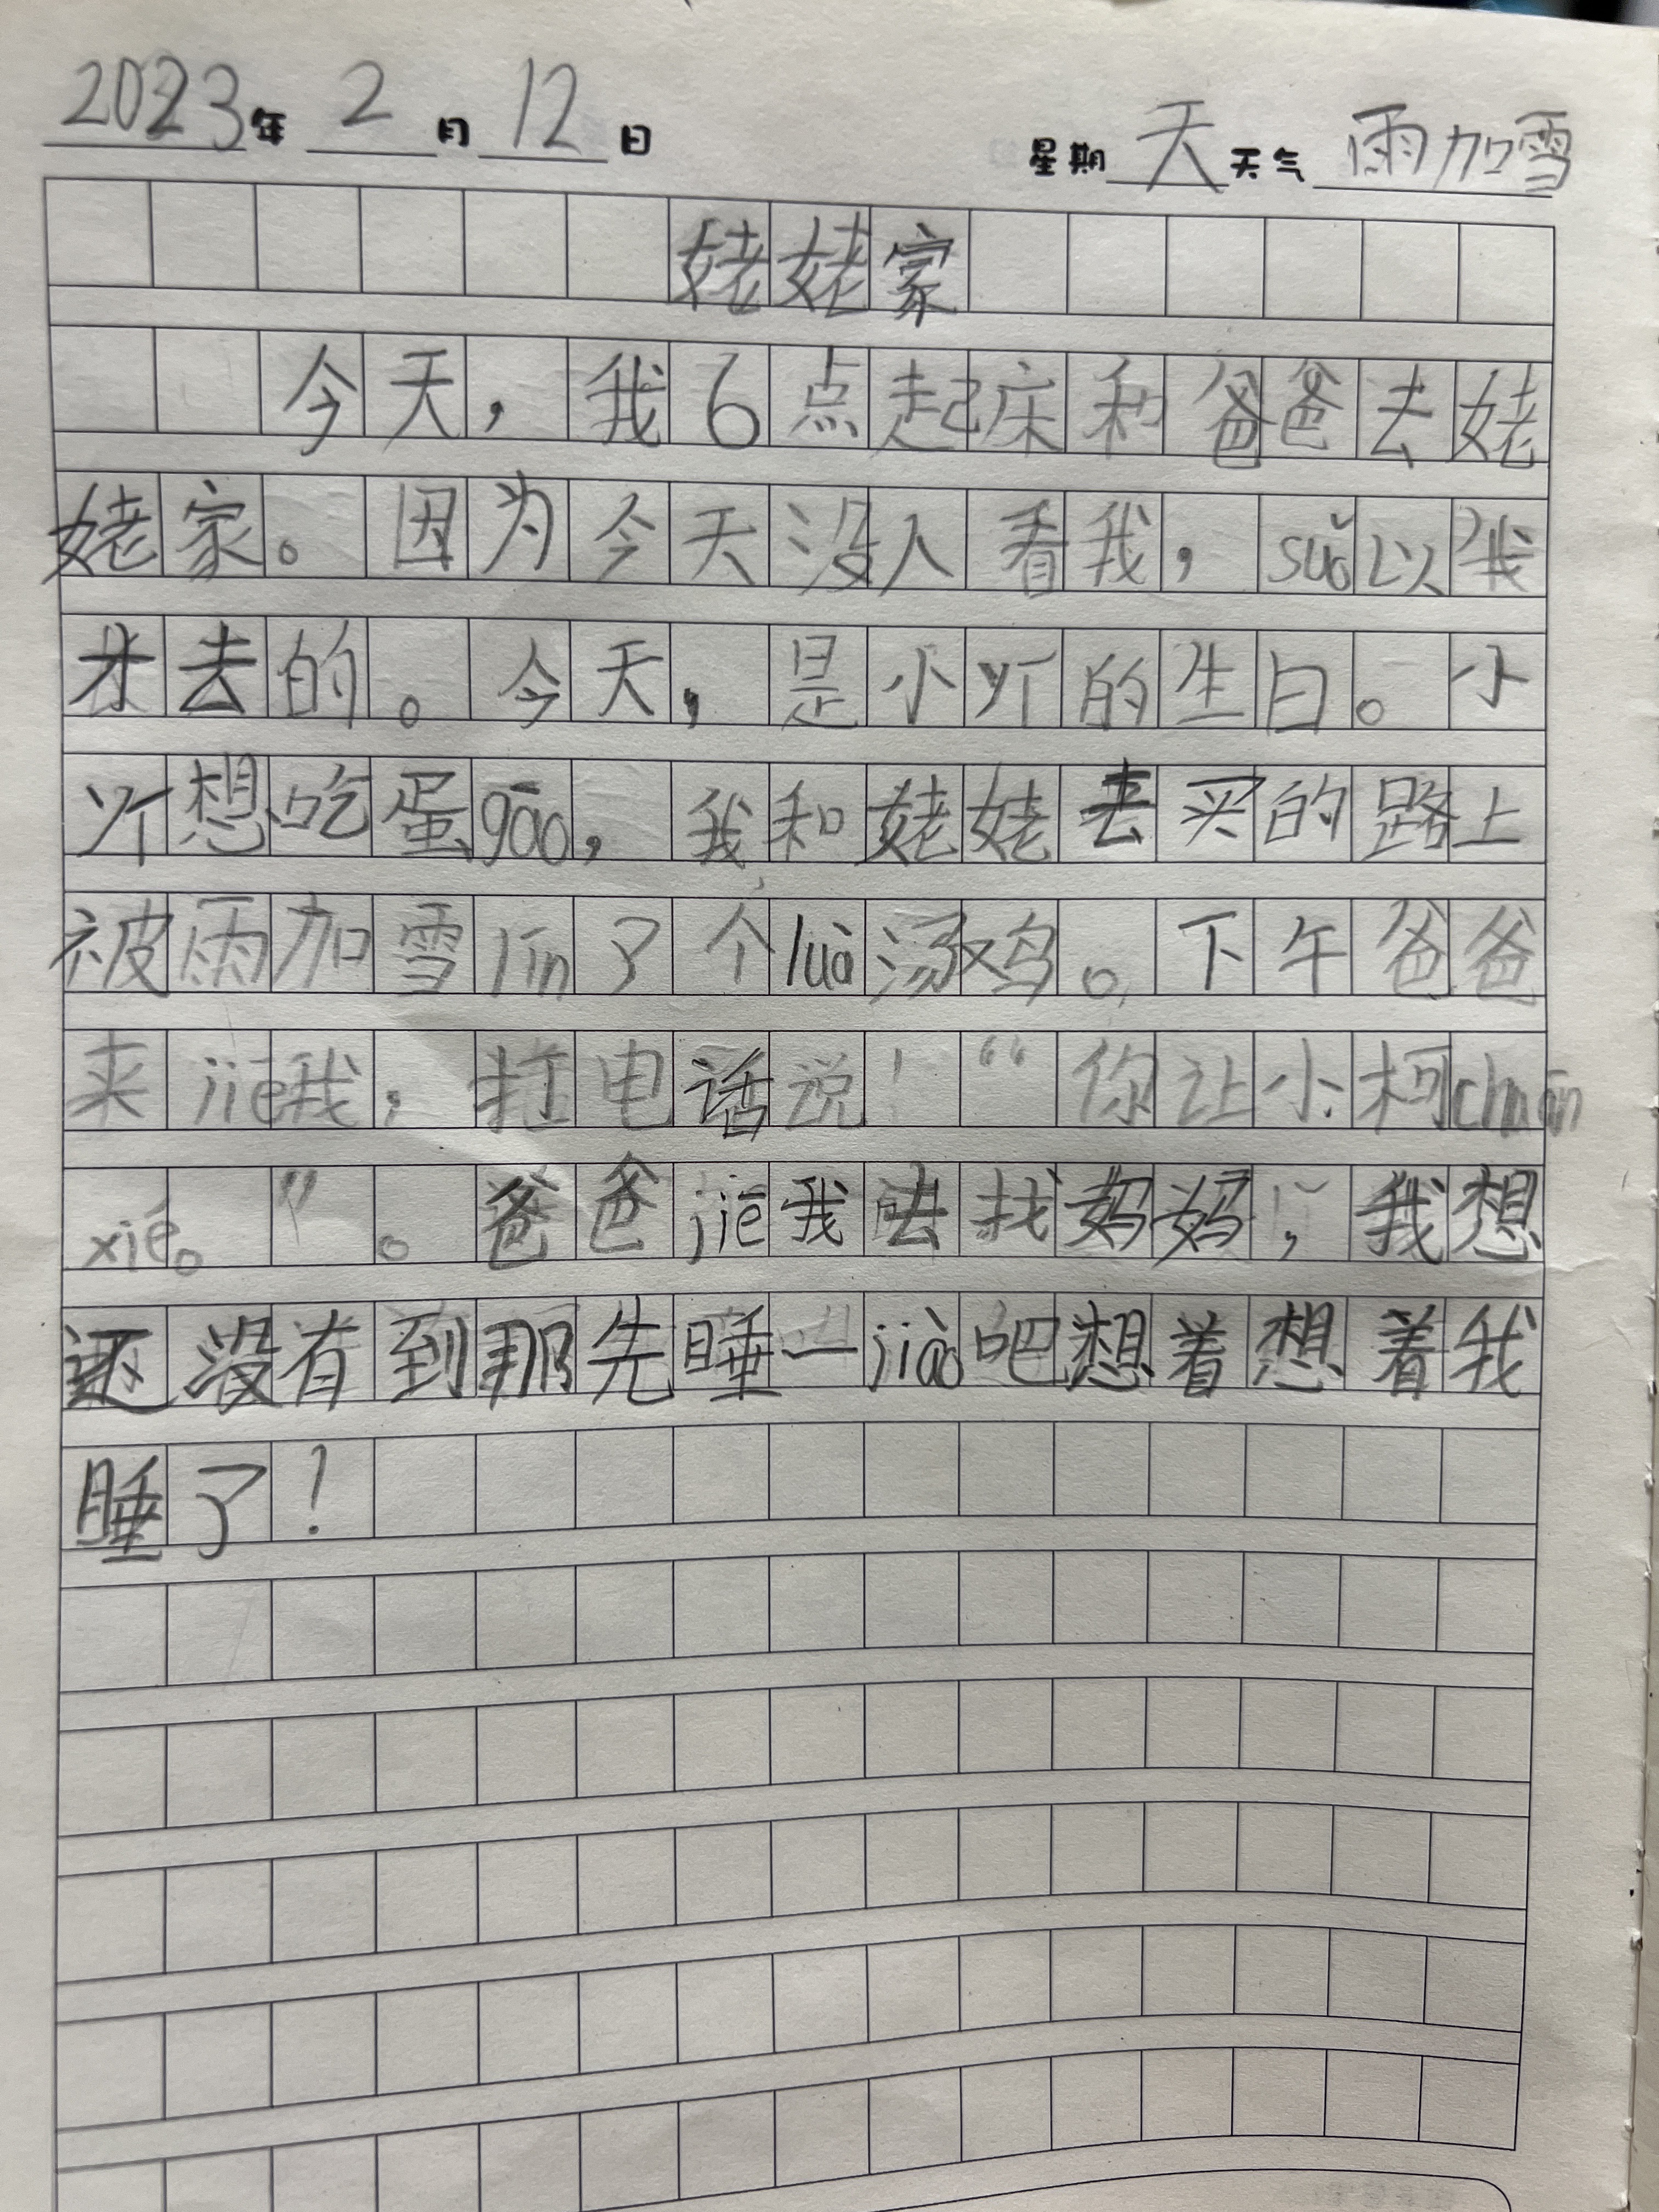 2023年 2 月 12 日 星期 天 天气 雨加雪
姥姥家
今天，我6点起床和爸爸去姥
姥家。因为今天没人看我，suǒ以我
才去的。今天，是小丫的生日。小
丫想吃蛋gāo，我和姥姥去买的路上
被雨加雪lín了个luò汤鸡。下午爸爸
来jiē我，打电话说！“你让小柯chuān
xié。”。爸爸jiē我去找妈妈，我想
还没有到那先睡一jiào吧想着想着我
睡了！